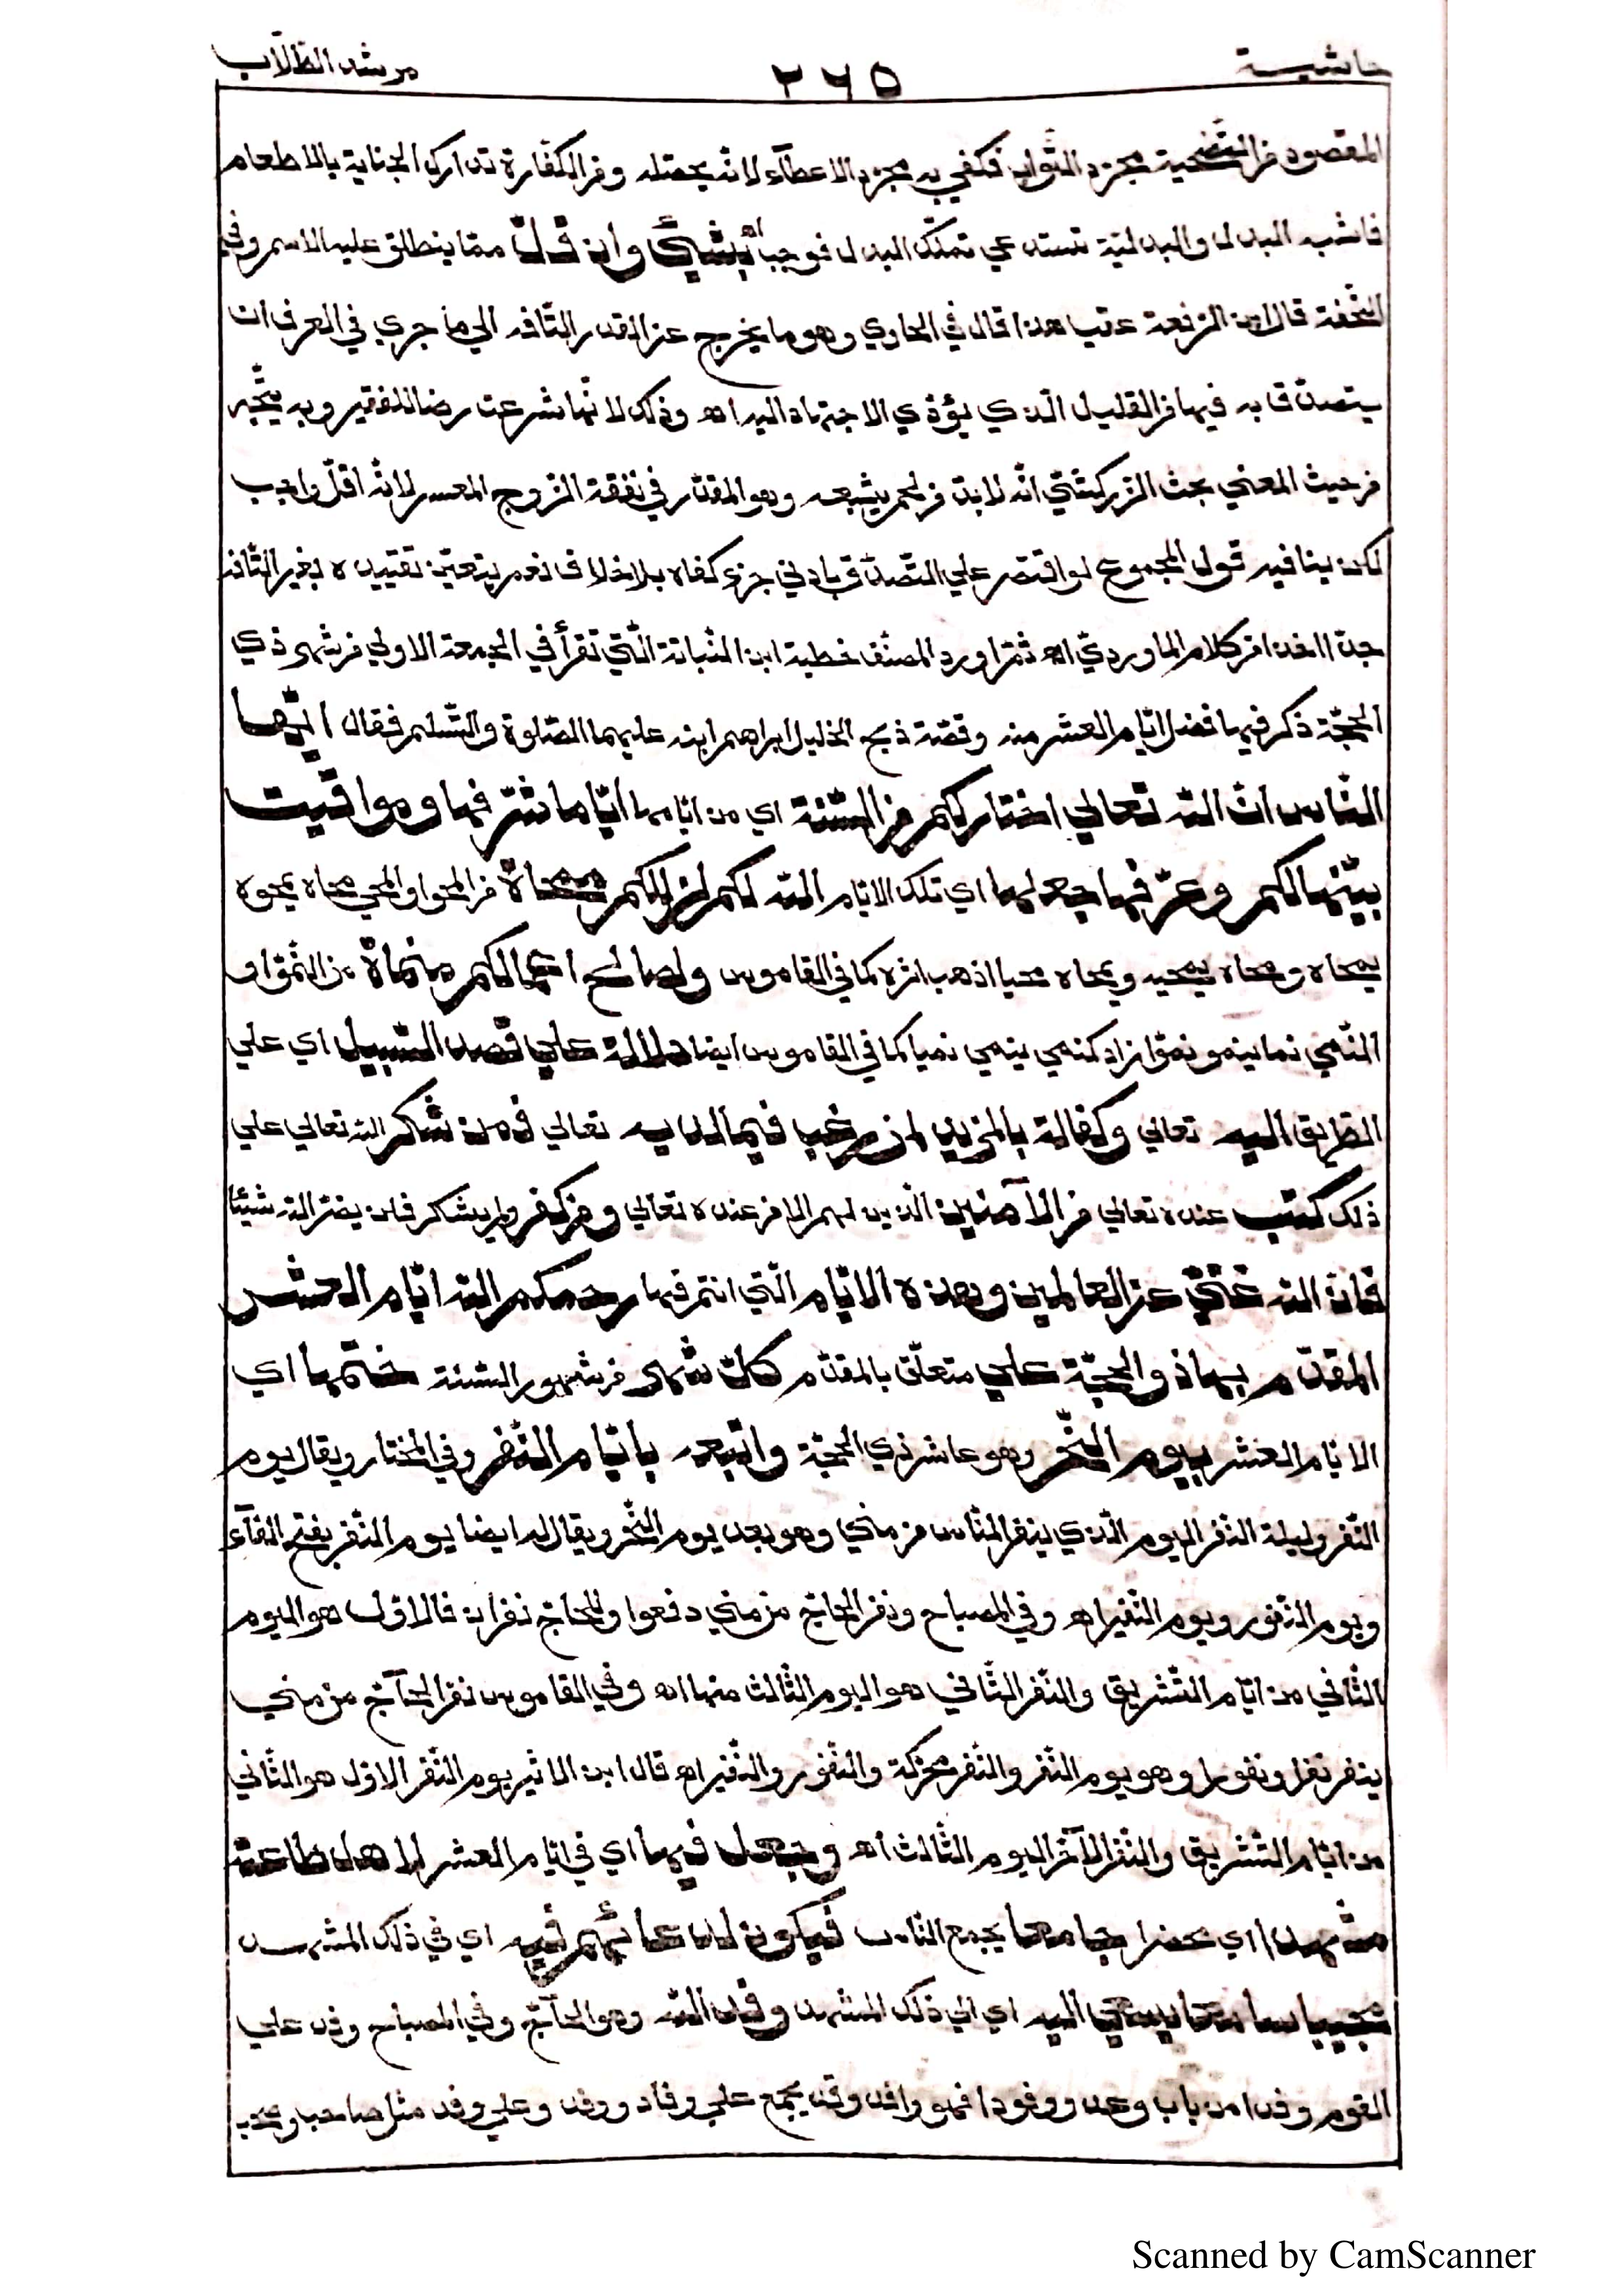 حاشية ٢٦٥ مرشد الطّلّاب
المقصود من التّضحية مجرّد الثّواب فكفي به مجرّد الاعطآء لانّه يحصّله وفي الكفّارة تدارك الجناية بالاطعام
فاشبه البدل والبدليّة تستدعي تملّك البدل فوجب اه بشيئ وان قلّ ممّا ينطلق عليه الاسم وفي
التّحفة قال ابن الرّفعة عقب هذا قال في الحاوي وهو ما يخرج عن القدر التّافه الي ما جري في العرف ان
يتصدّق به فيها من القليل الّذي يؤدّي الاجتهاد اليه اه وذلك لانّها شرعت رضا للفقير وبه يتّجه
من حيث المعني بحث الزّركشيّ انّه لا بدّ من لحم يشبعه وهو المقدّر في نفقة الزّوج المعسر لانّه اقلّ واجب
لكن ينافيه قول المجموع لو اقتصر علي التّصدّق بادني جزء كفاه بلا خلاف نعم يتعيّن تقييده بغير التّافه
جدّا اخذا من كلام الماورديّ اه ثمّ اورد المصنّف خطبة ابن النّباتة الّتي تقرأ في الجمعة الاولي من شهر ذي
الحجّة ذكر فيها فضل ايّام العشر منه وقصّة ذبح الخليل ابراهيم ابنه عليهما الصّلوة والتّسليم فقال ايّها
النّاس انّ الله تعالي اختار لكم من السّنة اي من ايّامها ايّاما شرّفها ومواقيت
بيّنها لكم وعرّفها جعلها اي تلك الايّام الله لكم لزللكم ممحاة من المحو او المحي محاه يمحوه
يمحاه ومحاه يمحيه ويمحاه محيا اذهب اثره كما في القاموس ولصالح اعمالكم منماة من النّموّ او
النّمي نما ينمو نموّا زاد كنمي ينمي نميا كما في القاموس ايضا دلالة علي قصد السّبيل اي علي
الطّريق اليه تعالي وكفالة بالمزيد لمن رغب فيما لديه تعالي فمن شكر الله تعالي علي
ذلك كتب عنده تعالي من الآمنين الّذين لهم الامن عنده تعالي ومن كفر ولم يشكر فلن يضرّ الله شيئا
فانّ الله غنيّ عن العالمين وهذه الايّام الّتي انتم فيها رحمكم الله ايّام العشر
المقدّم بها ذو الحجّة علي متعلّق بالمقدّم كلّ شهر من شهور السّنة ختمها اي
الايّام العشر بيوم النّحر وهو عاشر ذي الحجّة واتبعه بايّام النّفر وفي المختار ويقال يوم
النّفر وليلة النّفر اليوم الّذي ينفر النّاس من مني وهو بعد يوم النّحر ويقال له ايضا يوم النّفر بفتح الفآء
ويوم النّفور ويوم النّفير اه وفي المصباح ونفر الحاجّ من مني دفعوا وللحاجّ نفران فالاوّل هو اليوم
الثّاني من ايّام التّشريق والنّفر الثّاني هو اليوم الثّالث منها اه وفي القاموس نفر الحآجّ من مني
ينفر نفرا ونفورا وهو يوم النّفر والنّفر محرّكة والنّفور والنّفير اه قال ابن الاثير يوم النّفر الاوّل هو الثّاني
من ايّام التّشريق والنّفر الآخر اليوم الثّالث اه وجعل فيها اي في ايّام العشر لاهل طاعته
مشهدا اي محضرا جامعا يجمع النّاس فيكون لدعائهم فيه اي في ذلك المشهد
مجيبا اليه اي الي ذلك المشهد وفد الله وهو الحآجّ وفي المصباح وفد علي
القوم وفدا من باب وعد ووفودا فهو وافد وقد يجمع علي وفّاد ووفد وعلي وفد مثل صاحب وصحب
Scanned by CamScanner